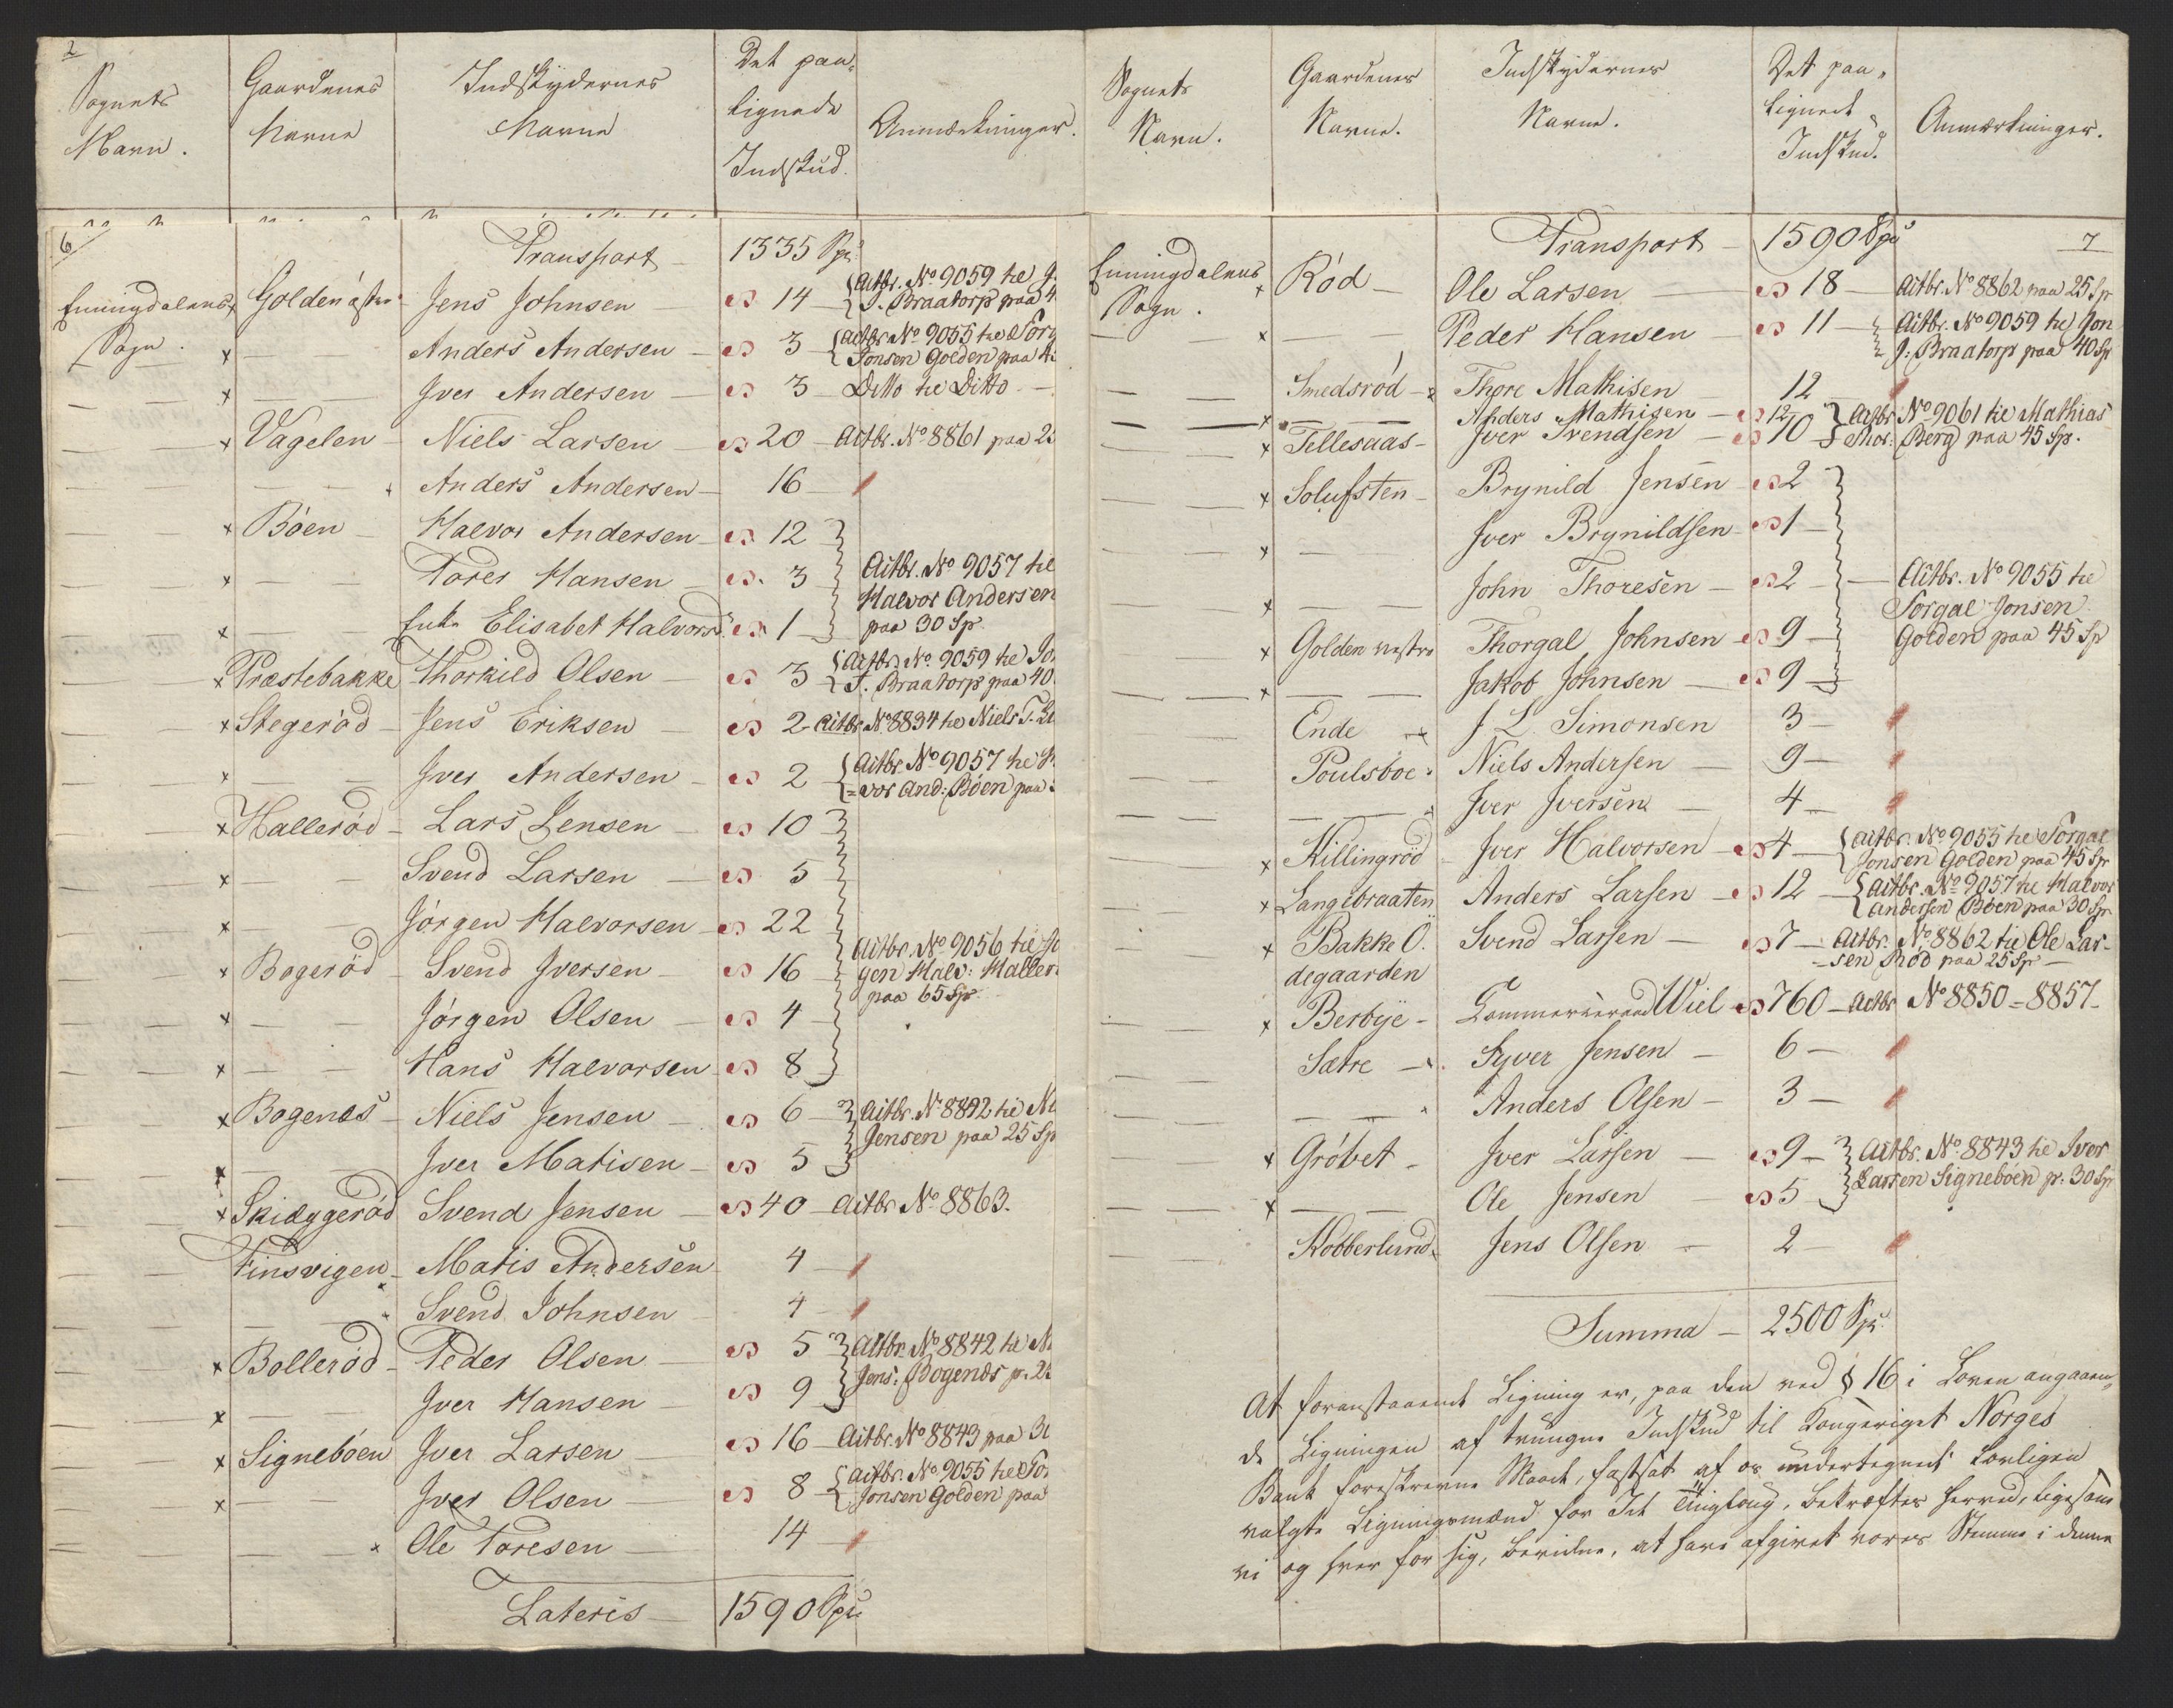 2
Sognets Navn. Gaardenes Navne Indskydernes Navne Det paalignede Indskud. Anmærkninger.
6
Transport 1335 Spu
Enningdalens Golden østre Jens Johnsen 14 Actbr. No 9059 til J.
J. Braatorp paa 4
Sogn. Anders Andersen 3 Actbr No 9055 til Torg
Jonsen Golden paa 45
Iver Andersen 3 Ditto til Ditto
Vagelen Niels Larsen 20 Actbr. No 8861 paa 25
Anders Andersen 16
Böen Halvor Andersen 12
Tores Hansen 3 Actbr. No 9057 til
Halvor Andersen
Enke Elisabet Halvorsd. 1 paa 30 Sp.
Præstebakke Thorkild Olsen 3 Actbr. No 9059 til Jo
J. Braatorp paa 40
Stegeröd Jens Eriksen 2 Actbr No 8834 til Niels T.
Iver Andersen 2 Actbr No 9057 til H
=vor And: Böen paa
Halleröd Lars Jensen 10
Svend Larsen 5
Jörgen Halvorsen 22
Actbr. No 9056 til Jö
Bogeröd Svend Iversen 16 gen Halv: Haller
paa 65 Sp.
Jörgen Olsen 4
Hans Halvorsen 8
Bogenæs Niels Jensen 6 Actbr. No 8842 til Ni
Jensen paa 25 Sp
Iver Matisen 5
Skiæggeröd Svend Jensen 40 Actbr No 8863.
Finsvigen Matis Andersen 4
Svend Johnsen 4
Bolleröd Peder Olsen 5 Actbr. No 8842 til Ni
Jens: Bogenæs p. 25
Iver Hansen 9
Signeböen Iver Larsen 16 Actbr. No 8843 paa 30
Iver Olsen 8 Actbr. No 9055 til Tor
Jonsen Golden paa
Ole Toresen 14
Lateris 1590 Spu
Sognets Navn. Gaardenes Navne. Indskydernes Navne. Det paalignede Indskud. Anmærkninger.
7
Transport 1590 Spu
Enningdalens Röd Ole Larsen 18 Actbr. No 8862 paa 25 Sp
Sogn. Peder Hansen 11 Actbr. No 9059 til Jon
J: Braatorp paa 40 Sp
Smedsröd Thore Mathisen 12
Anders Mathisen 12 Actbr No 9061 til Mathias
Tellesaas Iver Svendsen 10 Thor: Berg paa 45 Sp.
Solufsten Brynild Jensen 2
Iver Brynildsen 1
John Thoresen 2 Actbr. No 9055 til
Torgal Jonsen
Golden vestre Thorgal Johnsen 9 Golden paa 45 Sp
Jakob Johnsen 9
Ende J L. Simonsen 3
Poulsboe Niels Andersen 9
Iver Iversen 4
Killingröd Iver Halvorsen 4 Actbr. No 9055 til Torgal
Jonsen Golden paa 45 Sp
Langebraaten Anders Larsen 12 Actbr. No 9057 til Halvor
Andersen Böen paa 30 Sp.
Bakke Ö. Svend Larsen 7 Actbr. No 8862 til Ole Lar-
degaarden -sen Röd paa 25 Sp
Berbye Commerceraad Wiel 760 Actbr No 8850 = 8857
Sætre Syver Jensen 6
Anders Olsen 3
Gröbet Iver Larsen 9 Actbr. No 8843 til Iver
Larsen Signeböen p: 30 Sp
Ole Jensen 5
Kobberlund Jens Olsen 2
Summa 2500 Spu.
At foranstaaende Ligning er, paa den ved § 16 i Loven angaaen-
de Ligningen af tvungne Indskud til Kongeriget Norges
Bank foreskrevne Maade, fastsat af os undertegnede lovligen
valgte Ligningsmænd for Id Tinglaug, bekræftes herved, ligesom
vi og hver for sig, bevidne, at have afgivet vores Stemme i denne